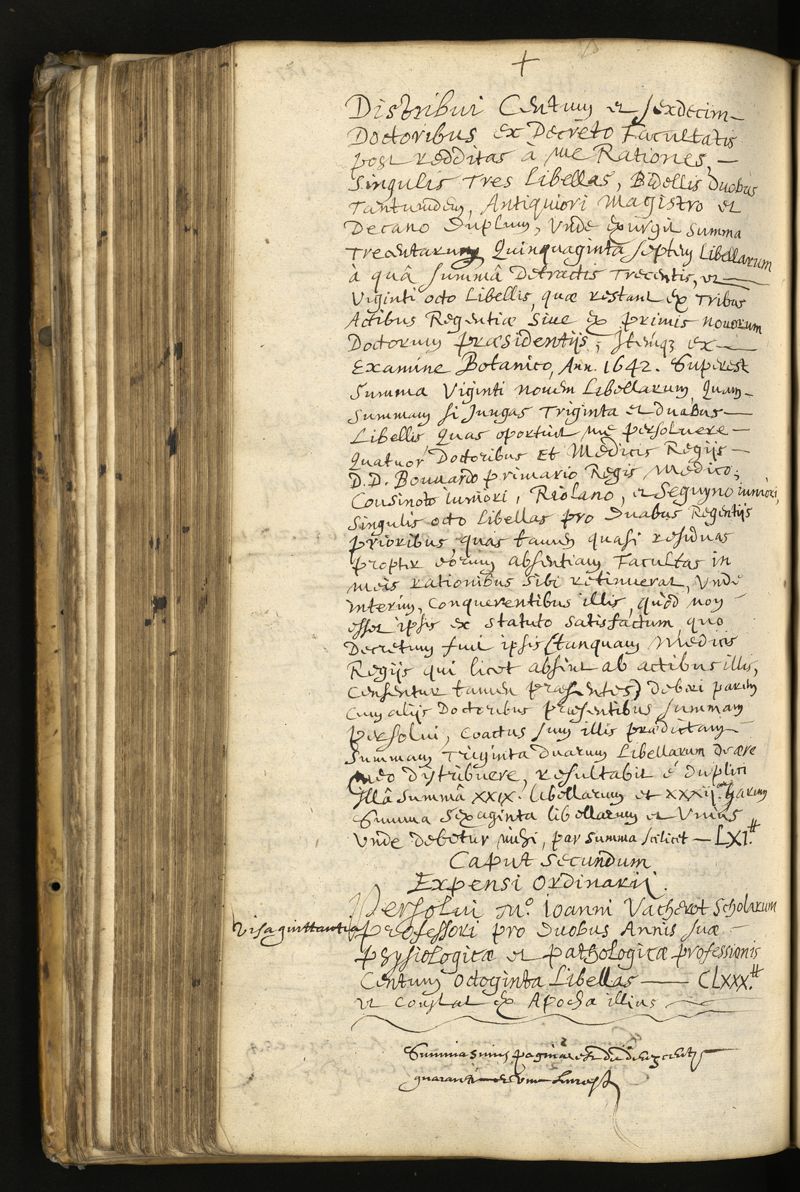 +
Distribui Centum et sexdecim
Doctoribus ex Decreto Facultatis
post redditas à me Rationes,
Singulis Tres Libellas, Bidellis Duobus
Tantumdem, Antiquiori Magistro et
Decano Duplum, Unde exurgit Summa
Trecentarum Quinquaginta septem Libellarum
à quâ summâ Detractis Trecentis, et
Viginti octo Libellis, quæ restant ex Tribus
Actibus Regentiæ Sive ex primis novorum
Doctorum Præsidentijs; Itemq; ex
Examine Botanico, Ann. 1642. Superest
Summa Viginti novem Libellarum, Quam
Summam si Jungas Triginta et duabus
Libellis Quas oportuit me persolvere
Quatuor Doctoribus Et Medicis Regijs
D.D. Bouvardo primario Regis Medico;
Cousinoto iuniori, Riolano, et Seguyno iuniori,
Singulis octo Libellas pro Duabus Regentijs
prioribus quas tamen quasi residuas
propter eorum absentiam Facultas in
meis rationibus sibi retinuerat, Unde
interim, Conquerentibus illis, quòd non
esset ipsis ex statuto satisfactum quo
Decretum fuit ipsis (tanquam Medicis
Regijs qui licet absint ab actibus illis,
Censentur tamen præsentes) deberi parem
Cum alijs Doctoribus præsentibus summam
persolui, Coactus sum illis prædictam
Summam Triginta duarum Libellarum de ære
meo distribuere, resultabit è Duplici
illâ Summâ XXIX. libellarum et XXXII. harum
Summa sexaginta libellarum et Unius
Unde debetur mihi, par summa scilicet — LXI.ᵗᵗ
Caput Secundum
Expensi Ordinarij.
Persolui M.º Ioanni Vacherot Scholarum
Visa quittantia professori pro Duobus Annis suæ
physiologicæ et pathologicæ professionis
Centum Octoginta Libellas — CLXXX.ᵗᵗ
ut Constat ex Apocha illius
Summa paginæ
quarante et une